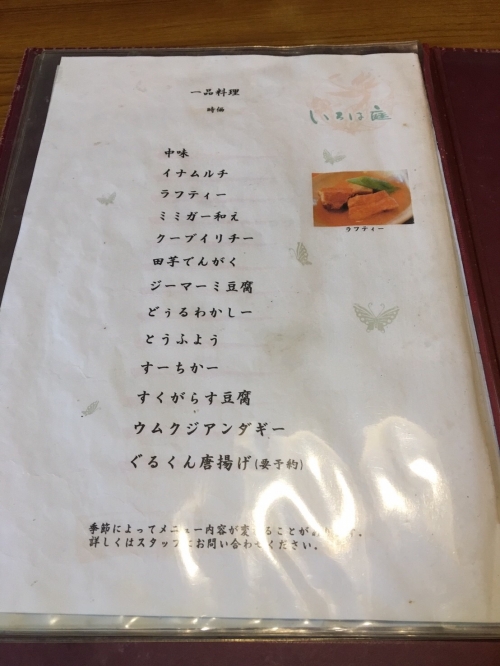 一品料理
時価
いろは庭
中味
イナムルチ
ラフティー
ミミガー和え
クーブイリチー
田芋でんがく
ジーマーミ豆腐
どぅるわかしー
とうふよう
すーちかー
すくがらす豆腐
ウムクジアンダギー
ぐるくん唐揚げ(要予約)
ラフティー
季節によってメニュー内容が変わることがあります。
詳しくはスタッフにお問い合わせください。